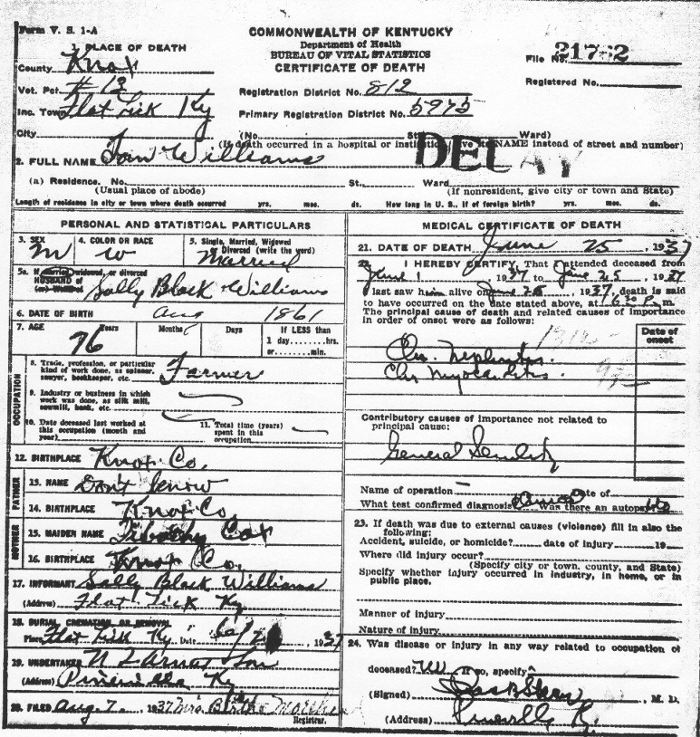 Form V. S. 1-A
COMMONWEALTH OF KENTUCKY
Department of Health
BUREAU OF VITAL STATISTICS
CERTIFICATE OF DEATH
File No. 21762
Registered No.
1. PLACE OF DEATH
County Knox
Vot. Pct. #13
Inc. Town Flat Lick Ky
City
Registration District No. 812
Primary Registration District No. 5975
(No. St. Ward)
(If death occurred in a hospital or institution, give its NAME instead of street and number)
DELAY
2. FULL NAME Tom Williams
(a) Residence. No. St., Ward
(Usual place of abode) (If nonresident, give city or town and State)
Length of residence in city or town where death occurred yrs. mos. ds. How long in U. S., if of foreign birth? yrs. mos. ds.
PERSONAL AND STATISTICAL PARTICULARS
3. SEX M
4. COLOR OR RACE W
5. Single, Married, Widowed or Divorced (write the word) Married
5a. If married, widowed, or divorced
HUSBAND of
Sally Black Williams
6. DATE OF BIRTH Aug 1861
7. AGE 76 Years Months Days If LESS than
1 day hrs.
or min.
OCCUPATION
8. Trade, profession, or particular
kind of work done, as spinner,
sawyer, bookkeeper, etc. Farmer
9. Industry or business in which
work was done, as silk mill,
sawmill, bank, etc.
10. Date deceased last worked at
this occupation (month and
year)
11. Total time (years)
spent in this
occupation
12. BIRTHPLACE Knox Co.
FATHER
13. NAME Don't know
14. BIRTHPLACE Knox Co,
MOTHER
15. MAIDEN NAME Cox
16. BIRTHPLACE Knox Co.
17. INFORMANT Sally Black Williams
(Address) Flat Lick Ky
18. BURIAL, CREMATION OR REMOVAL
Place Flat Lick Ky Date 6/ 1937
19. UNDERTAKER Son
(Address) Pineville Ky
20. FILED Aug 7. 1937 Mrs.
Registrar.
MEDICAL CERTIFICATE OF DEATH
21. DATE OF DEATH June 25, 1937
22. I HEREBY CERTIFY, That I attended deceased from
June 1 1937 to June 25 1937
I last saw him alive on June 25 1937, death is said
to have occurred on the date stated above, at P.m.
The principal cause of death and related causes of importance
in order of onset were as follows:
Date of
onset
Chr. Nephritis
Chr Myocarditis
Contributory causes of importance not related to
principal cause:
General Senility
Name of operation Date of
What test confirmed diagnosis? Was there an autopsy? No
23. If death was due to external causes (violence) fill in also the
following:
Accident, suicide, or homicide? date of injury 19
Where did injury occur?
(Specify city or town, county, and State)
Specify whether injury occurred in industry, in home, or in
public place.
Manner of injury
Nature of injury
24. Was disease or injury in any way related to occupation of
deceased? If so, specify
(Signed) M. D.
(Address) Pineville Ky.